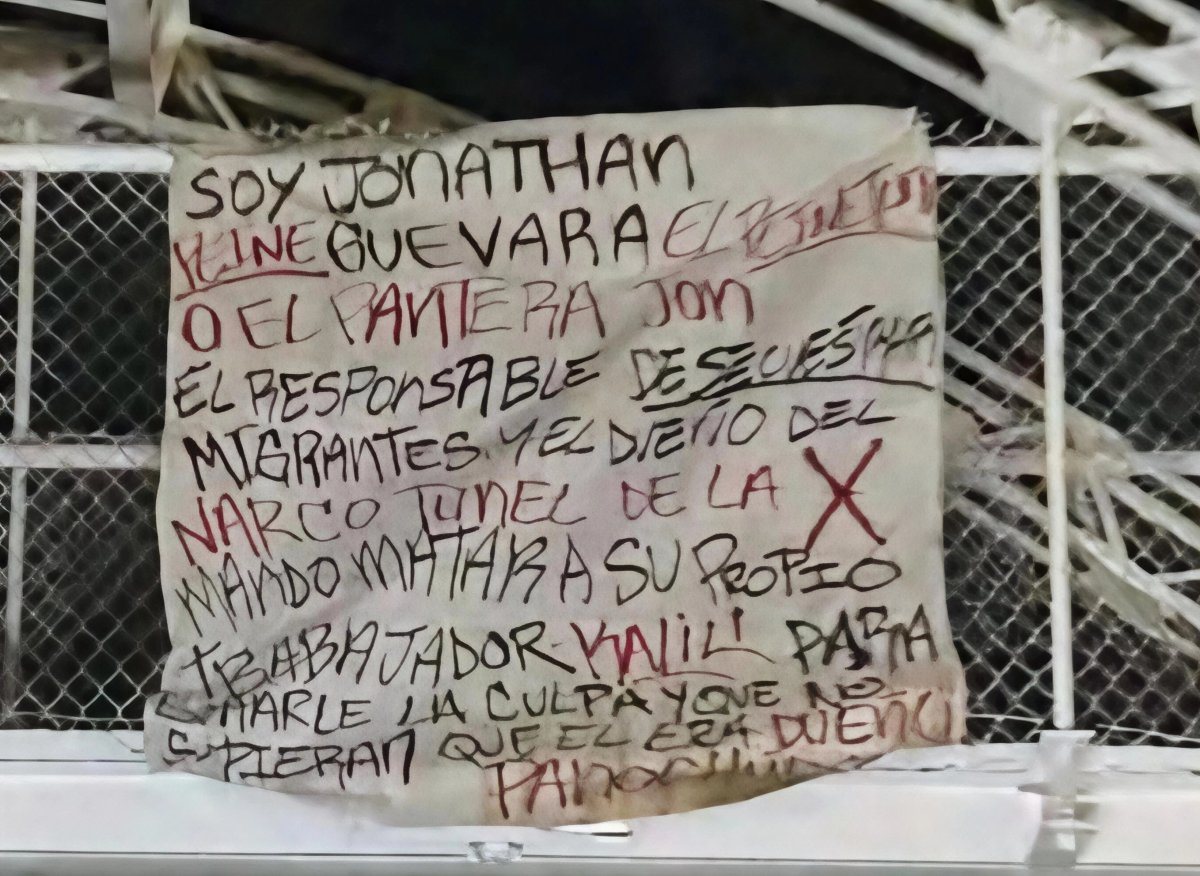 SOY JONATHAN
PEINE GUEVARA EL
O EL PANTERA JON
EL RESPONSABLE DE SECUESTRAR
MIGRANTES. Y EL DUEÑO DEL
NARCO TUNEL DE LA X
MANDO MATAR A SU PROPIO
TRABAJADOR KALIL PARA
LA CULPA Y QUE NO
SUPIERAN QUE EL ERA DUEÑO